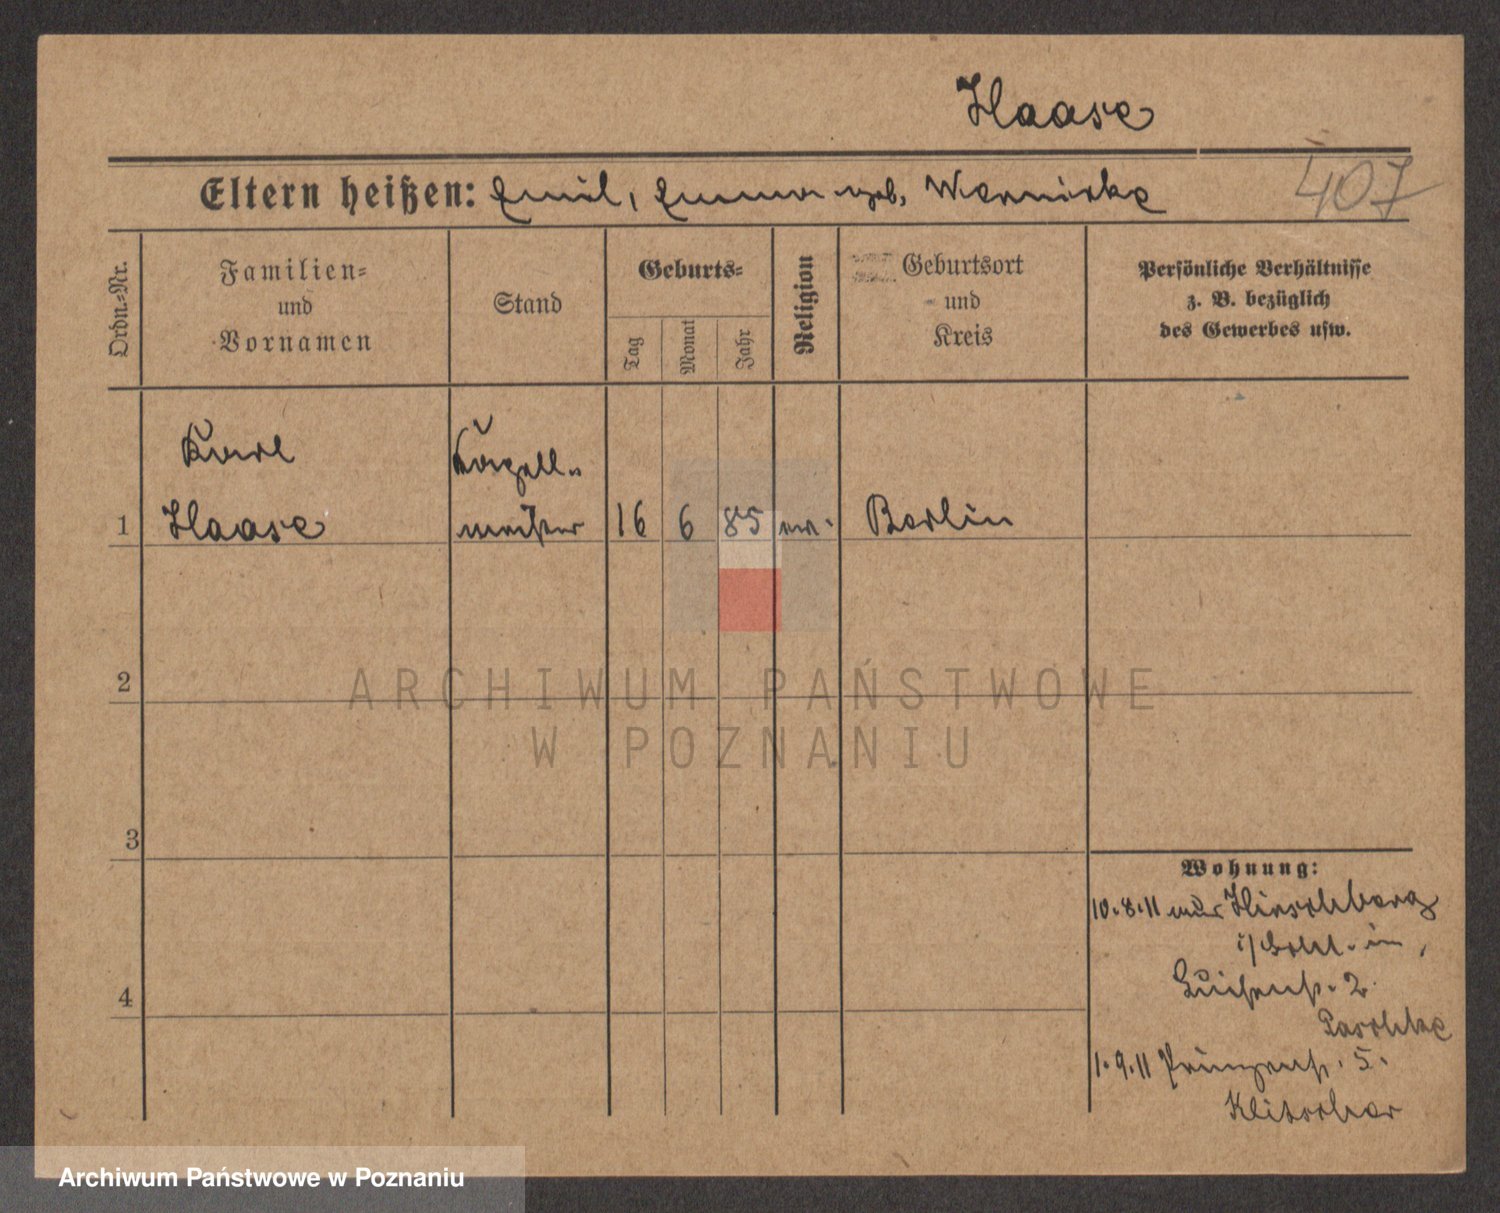 Haase
Eltern heißen: Emil, Emma geb. Wernicke
407
Ordn.=Nr.
Familien=
und
Vornamen
Stand
Geburts=
Tag
Monat
Jahr
Religion
Geburtsort
und
Kreis
Persönliche Verhältnisse
z. B. bezüglich
des Gewerbes usw.
Karl
Kapell-
1 Haase meister 16 6 85 ev. Berlin
2
ARCHIWUM PAŃSTWOWE
W POZNANIU
3
Wohnung:
10.8.11 aus Hirschberg
i/Schl. in
4
Luisenstr. 2
Paschke
1.9.11 Prinzenstr. 5.
Klitscher
Archiwum Państwowe w Poznaniu